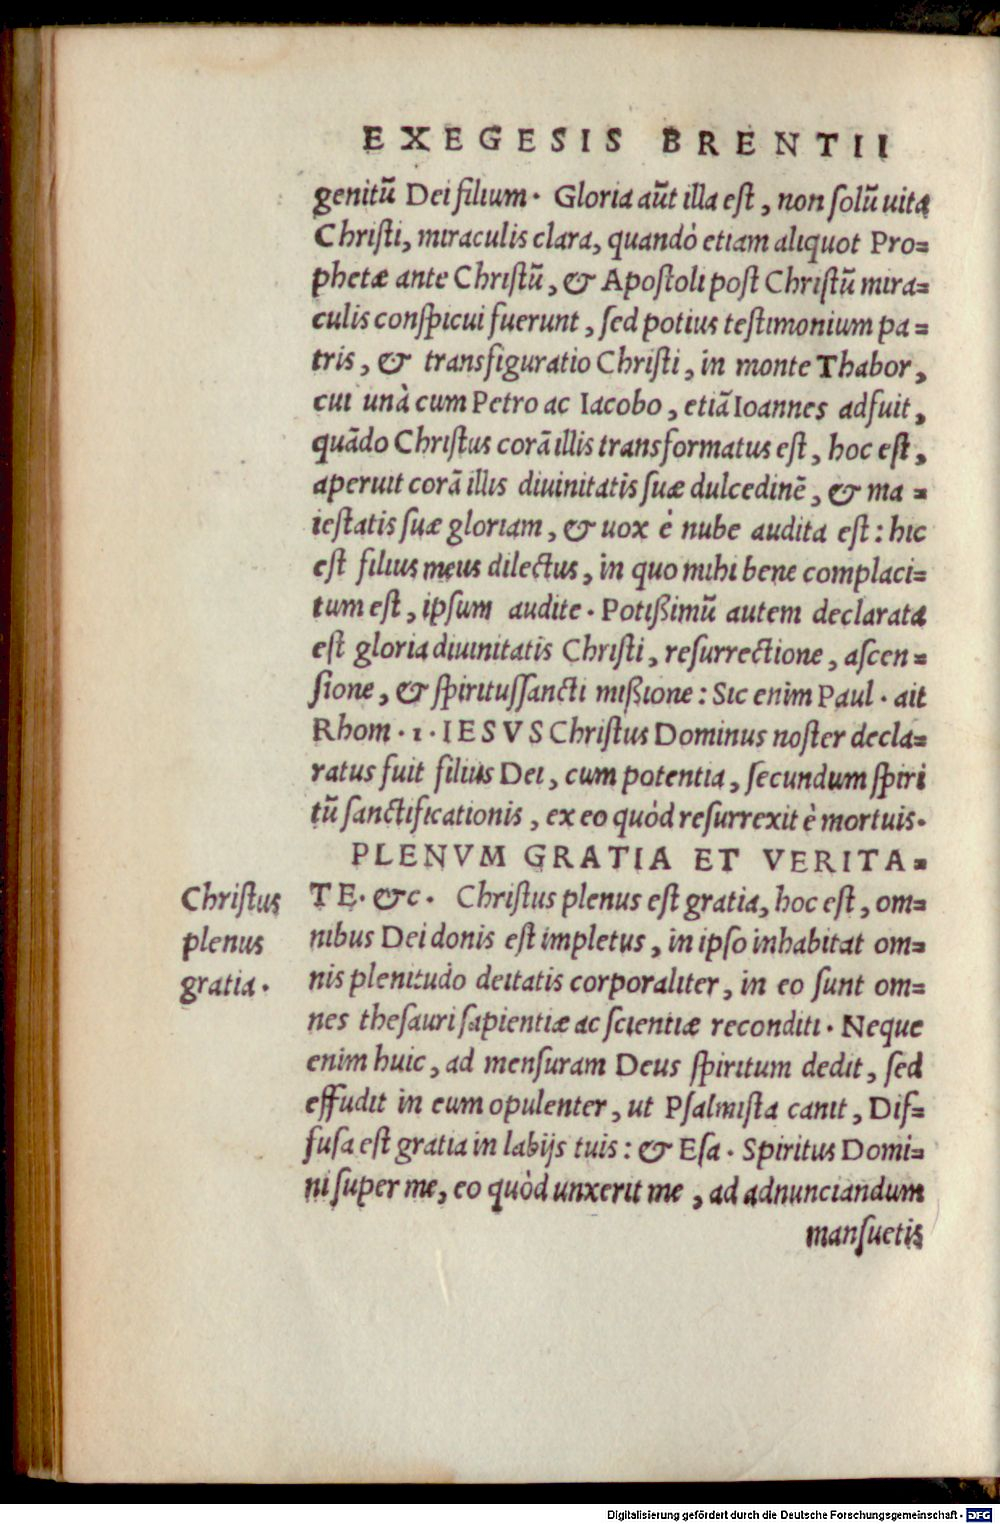 EXEGESIS BRENTII
genitū Dei filium. Gloria aūt illa est, non solū uita
Christi, miraculis clara, quandò etiam aliquot Pro=
phetæ ante Christū, & Apostoli post Christū mira=
culis conspicui fuerunt, sed potius testimonium pa=
tris, & transfiguratio Christi, in monte Thabor,
cui unà cum Petro ac Iacobo, etiā Ioannes adfuit,
quādo Christus corā illis transformatus est, hoc est,
aperuit corā illis diuinitatis suæ dulcedinē, & ma=
iestatis suæ gloriam, & uox è nube audita est: hic
est filius meus dilectus, in quo mihi bene complaci=
tum est, ipsum audite. Potißimū autem declarata
est gloria diuinitatis Christi, resurrectione, ascen=
sione, & spiritussancti mißione: Sic enim Paul. ait
Rhom. 1. IESVS Christus Dominus noster decla=
ratus fuit filius Dei, cum potentia, secundum spiri
tū sanctificationis, ex eo quòd resurrexit è mortuis.
PLENVM GRATIA ET VERITA=
Christus
plenus
gratia.
TE. &c. Christus plenus est gratia, hoc est, om=
nibus Dei donis est impletus, in ipso inhabitat om=
nis plenitudo deitatis corporaliter, in eo sunt om=
nes thesauri sapientiæ ac scientiæ reconditi. Neque
enim huic, ad mensuram Deus spiritum dedit, sed
effudit in eum opulenter, ut Psalmista canit, Dif=
fusa est gratia in labijs tuis: & Esa. Spiritus Domi=
ni super me, eo quòd unxerit me, ad adnunciandum
mansuetis
Digitalisierung gefördert durch die Deutsche Forschungsgemeinschaft - DFG